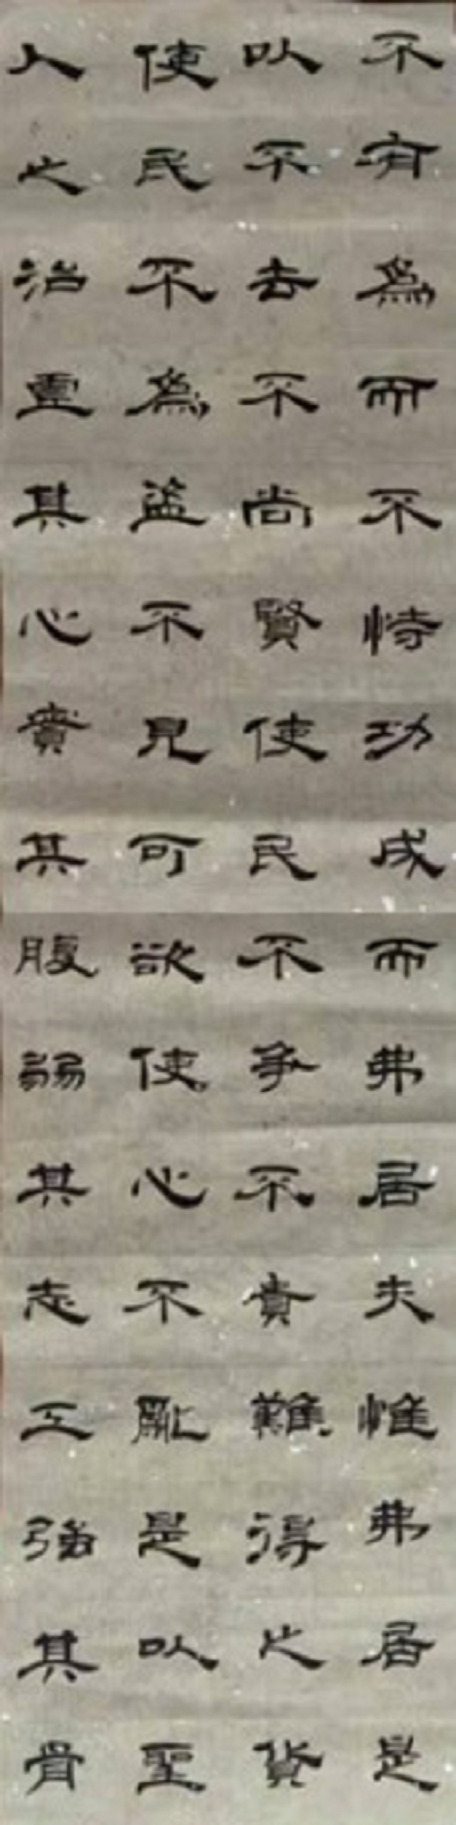 不有爲而不恃功成而弗居夫惟弗居是
以不去不尚賢使民不爭不貴難得之貨
使民不爲盜不見可欲使心不亂是以聖
人之治虛其心實其腹弱其志工強其骨